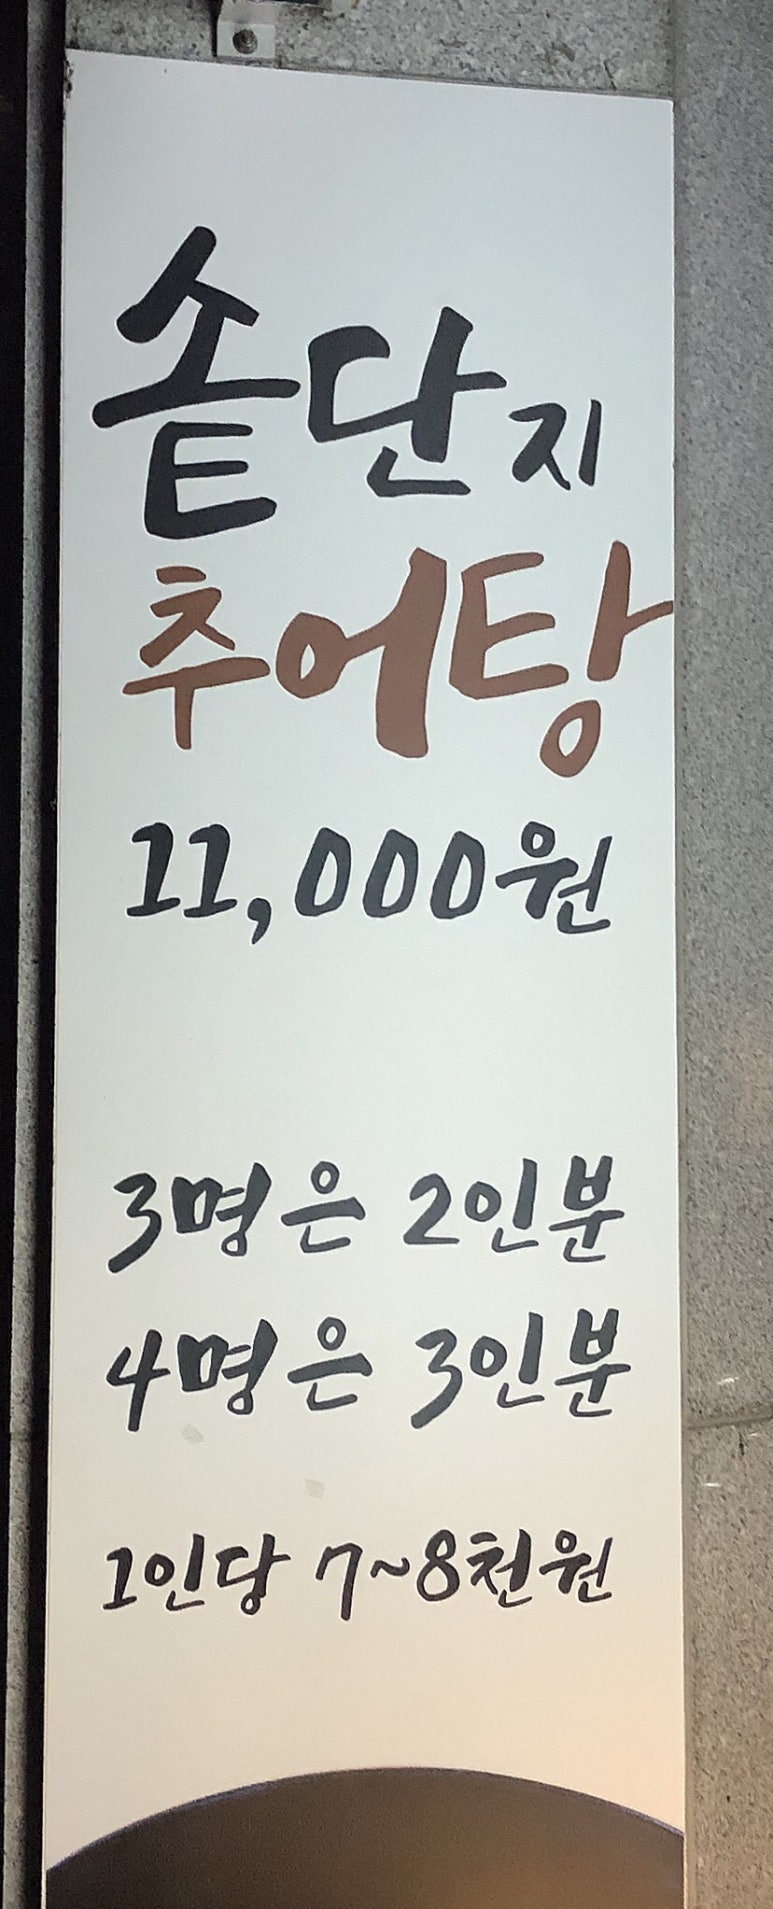 솥단지
추어탕
11,000원
3명은 2인분
4명은 3인분
1인당 7~8천원